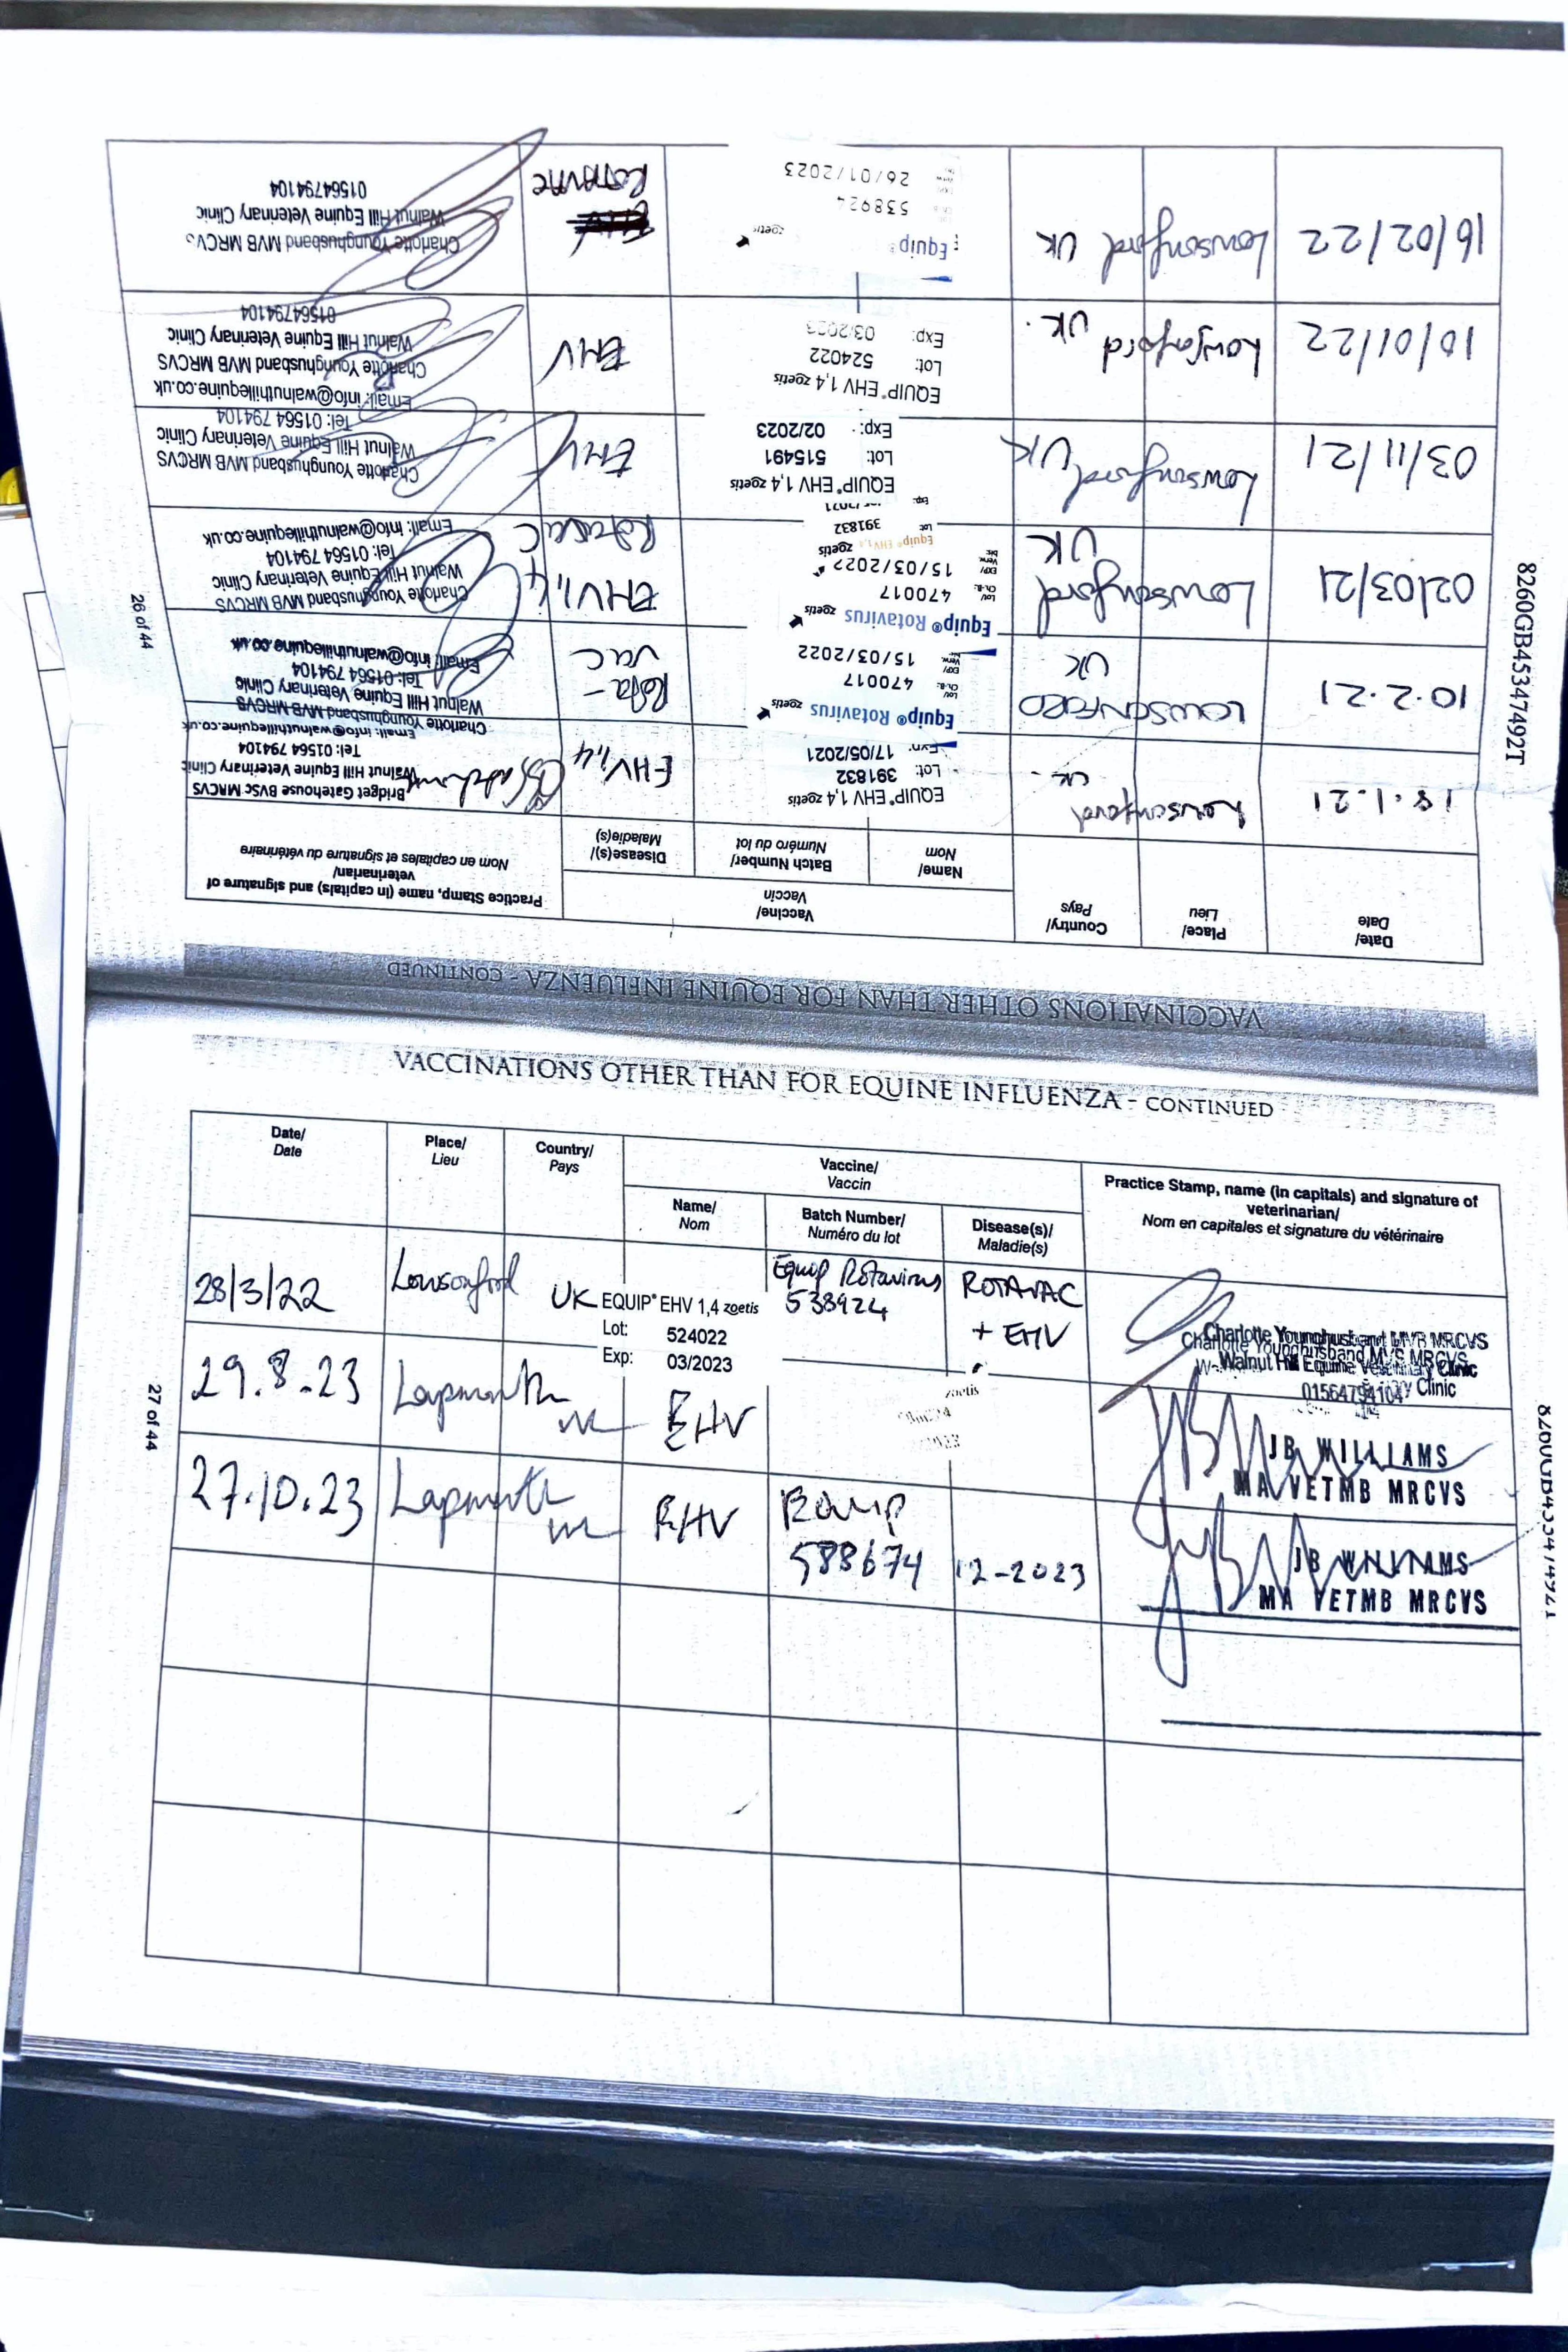 VACCINATIONS OTHER THAN FOR EQUINE INFLUENZA - CONTINUED
Date/
Date
Place/
Lieu
Country/
Pays
Vaccine/
Vaccin
Name/
Nom
Batch Number/
Numéro du lot
Disease(s)/
Maladie(s)
Practice Stamp, name (in capitals) and signature of
veterinarian/
Nom en capitales et signature du vétérinaire
18.1.21
Lowsonford
UK
EQUIP® EHV 1,4 zoetis
Lot: 391832
Exp: 17/05/2021
EHV1,4
Bridget Gatehouse BVSc MRCVS
Walnut Hill Equine Veterinary Clinic
Tel: 01564 794104
Email: info@walnuthillequine.co.uk
10.2.21
LOWSONFORD
UK
Equip® Rotavirus zoetis
Lot/
Ch.-B.:
470017
EXP/
Verw.
bis:
15/03/2022
Rota-
vac
Charlotte Younghusband MVB MRCVS
Walnut Hill Equine Veterinary Clinic
Tel: 01564 794104
Email: info@walnuthillequine.co.uk
02/03/21
Lowsonford
UK
Equip® Rotavirus zoetis
Lot/
Ch.-B.:
470017
EXP/
Verw.
bis:
15/03/2022
Equip® EHV 1,4 zoetis
Lot: 391832
Exp:
EHV1,4
Rotavac
Charlotte Younghusband MVB MRCVS
Walnut Hill Equine Veterinary Clinic
Tel: 01564 794104
Email: info@walnuthillequine.co.uk
03/11/21
Lowsonford
UK
EQUIP® EHV 1,4 zoetis
Lot: 515491
Exp: 02/2023
EHV
Charlotte Younghusband MVB MRCVS
Walnut Hill Equine Veterinary Clinic
Tel: 01564 794104
Email: info@walnuthillequine.co.uk
10/01/22
Lowsonford
UK.
EQUIP® EHV 1,4 zoetis
Lot: 524022
Exp: 03/2023
EHV
Charlotte Younghusband MVB MRCVS
Walnut Hill Equine Veterinary Clinic
01564794104
16/02/22
Lowsonford
UK
Equip®
zoetis
538924
26/01/2023
ROTAVAC
Charlotte Younghusband MVB MRCVS
Walnut Hill Equine Veterinary Clinic
01564794104
26 of 44
8260GB45347492T
VACCINATIONS OTHER THAN FOR EQUINE INFLUENZA - CONTINUED
Date/
Date
Place/
Lieu
Country/
Pays
Vaccine/
Vaccin
Name/
Nom
Batch Number/
Numéro du lot
Disease(s)/
Maladie(s)
Practice Stamp, name (in capitals) and signature of
veterinarian/
Nom en capitales et signature du vétérinaire
28/3/22
Lowsonford
UK
EQUIP® EHV 1,4 zoetis
Lot: 524022
Exp: 03/2023
Equip Rotavirus
538924
ROTAVAC
+ EHV
Charlotte Younghusband MVB MRCVS
Walnut Hill Equine Veterinary Clinic
01564794104
29.8.23
EHV
zoetis
JB WILLIAMS
MA VETMB MRCVS
27.10.23
EHV
Equip
588674
12-2023
JB WILLIAMS
MA VETMB MRCVS
27 of 44